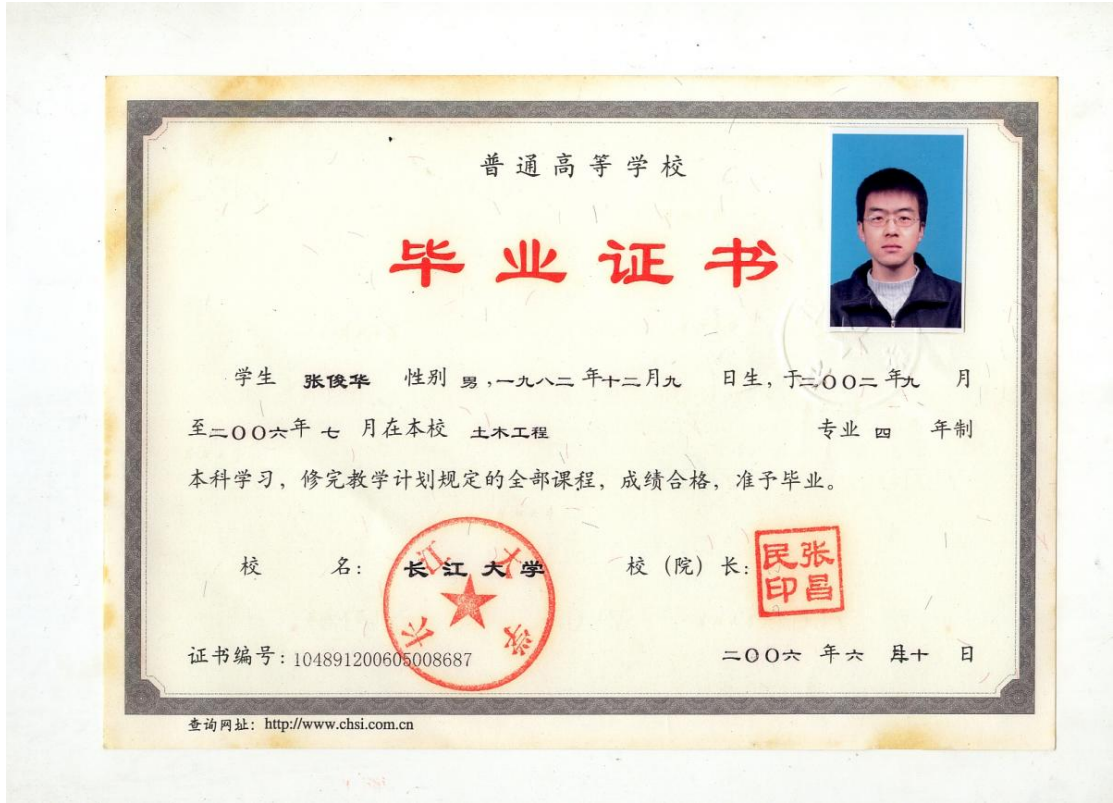 普通高等学校
毕业证书
学生 张俊华 性别 男，一九八二年十二月九 日生，于二〇〇二年九 月
至二〇〇六年 七 月在本校 土木工程 专业 四 年制
本科学习，修完教学计划规定的全部课程，成绩合格，准予毕业。
校 名： 长江大学 校（院）长：
长江大学
张昌民印
证书编号：104891200605008687 二〇〇六 年六 月十 日
查询网址：http://www.chsi.com.cn